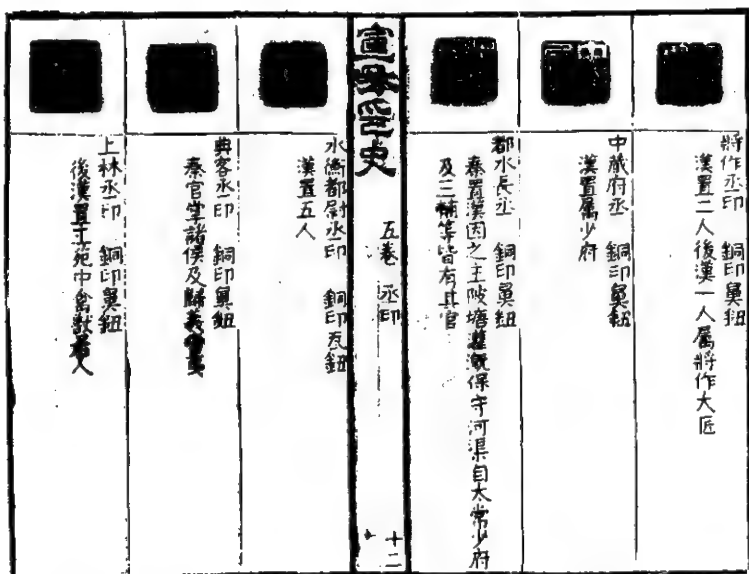 將作丞印 銅印鼻鈕
漢置二人後漢一人屬將作大匠
中藏府丞 銅印鼻鈕
漢置屬少府
都水長丞 銅印鼻鈕
秦置漢因之主陂塘灌溉保守河渠自太常少府
及三輔等皆有其官
宣和印史
五卷 丞印
十二
水衡都尉丞印 銅印瓦鈕
漢置五人
典客丞印 銅印鼻鈕
秦官掌諸侯及歸義
上林丞印 銅印鼻鈕
後漢置主苑中禽獸